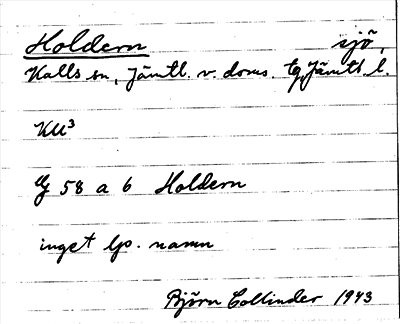 Holdern sjö,
Kalls sn, Jämtl. v. doms. tg, Jämtl. l.
KU³
58 a b Holdern
inget lp. namn
Björn Collinder 1943